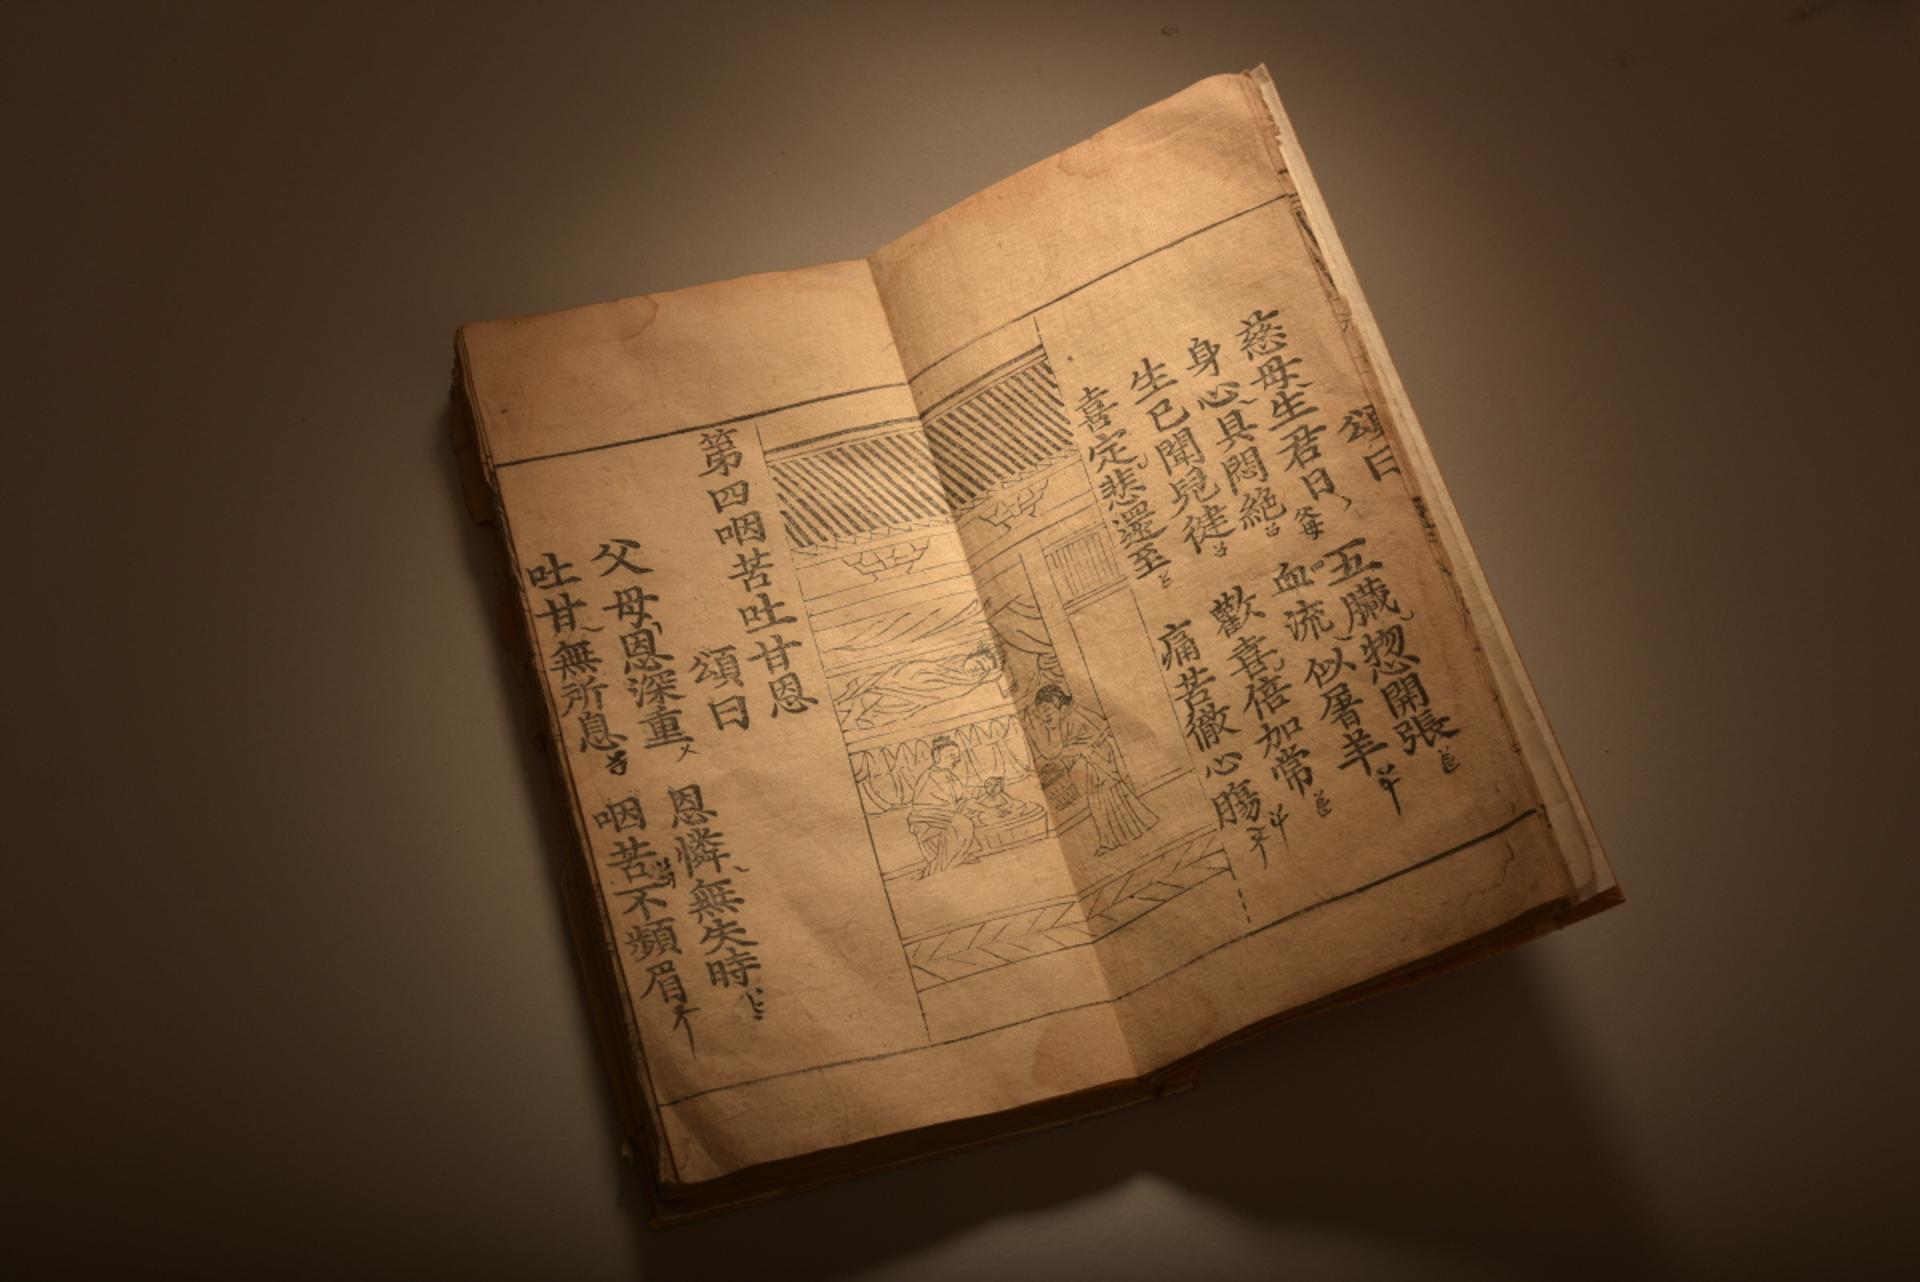 頌曰
慈母生君日 五臟惣開張
身心具悶絕 血流似屠羊
生已聞兒徒 歡喜倍加常
喜定悲還至 痛苦徹心膓
第四咽苦吐甘恩
頌曰
父母恩深重 恩憐無失時
吐甘無所息 咽苦不頻眉